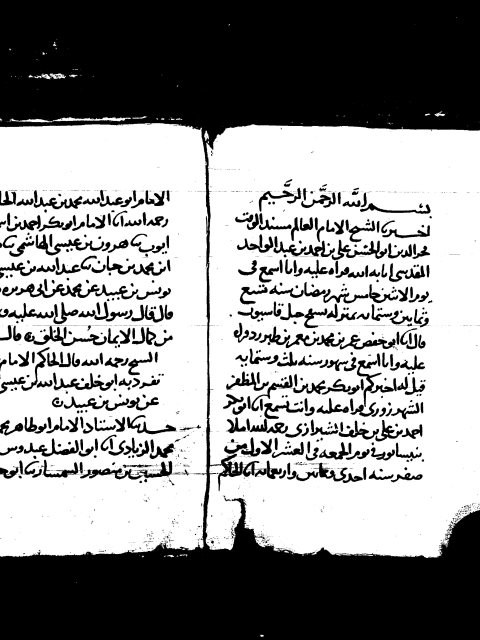 بسم الله الرحمن الرحيم
اخبرنا الشيخ الامام العالم مسند الوقت
فخر الدين ابو الحسن علي بن احمد بن عبد الواحد
المقدسي اثابه الله قراه عليه وانا اسمع في
يوم الاثنين خامس شهر رمضان سنه تسع
وثمانين وستمايه بمنزله بسفح جبل قاسيون
قال انا ابو حفص عمر بن محمد بن معمر بن طبرزد قراه
عليه وانا اسمع في شهور سنه ثلث وستمايه
قيل له اخبركم ابو بكر محمد بن القسم بن المظفر
الشهرزوري قراه عليه وانت تسمع انا ابو بكر
احمد بن علي بن خلف الشيرازي رحمه الله املا
بنيسابور في يوم الجمعه في العشر الاول من
صفر سنه احدى وثمانين واربعمائه انا الحاكم
الامام ابو عبد الله محمد بن عبد الله
رحمه الله انا الامام ابو بكر احمد بن
ايوب هرون بن عيسى الهاشمي
ابن محمد بن حيان عبد الله بن عيسى
يونس بن عبيد عن محمد عن ابي هريره
قال قال رسول الله صلى الله عليه
من كمال الايمان حسن الخلق قال
الشيخ رحمه الله قال الحاكم الامام
تفرد به ابو خلف عبد الله بن عيسى
عن يونس بن عبيد
حدثنا الاستاذ الامام ابو طاهر
محمد الزيادي انا ابو الفضل عبدوس
الحسين بن منصور السمسار